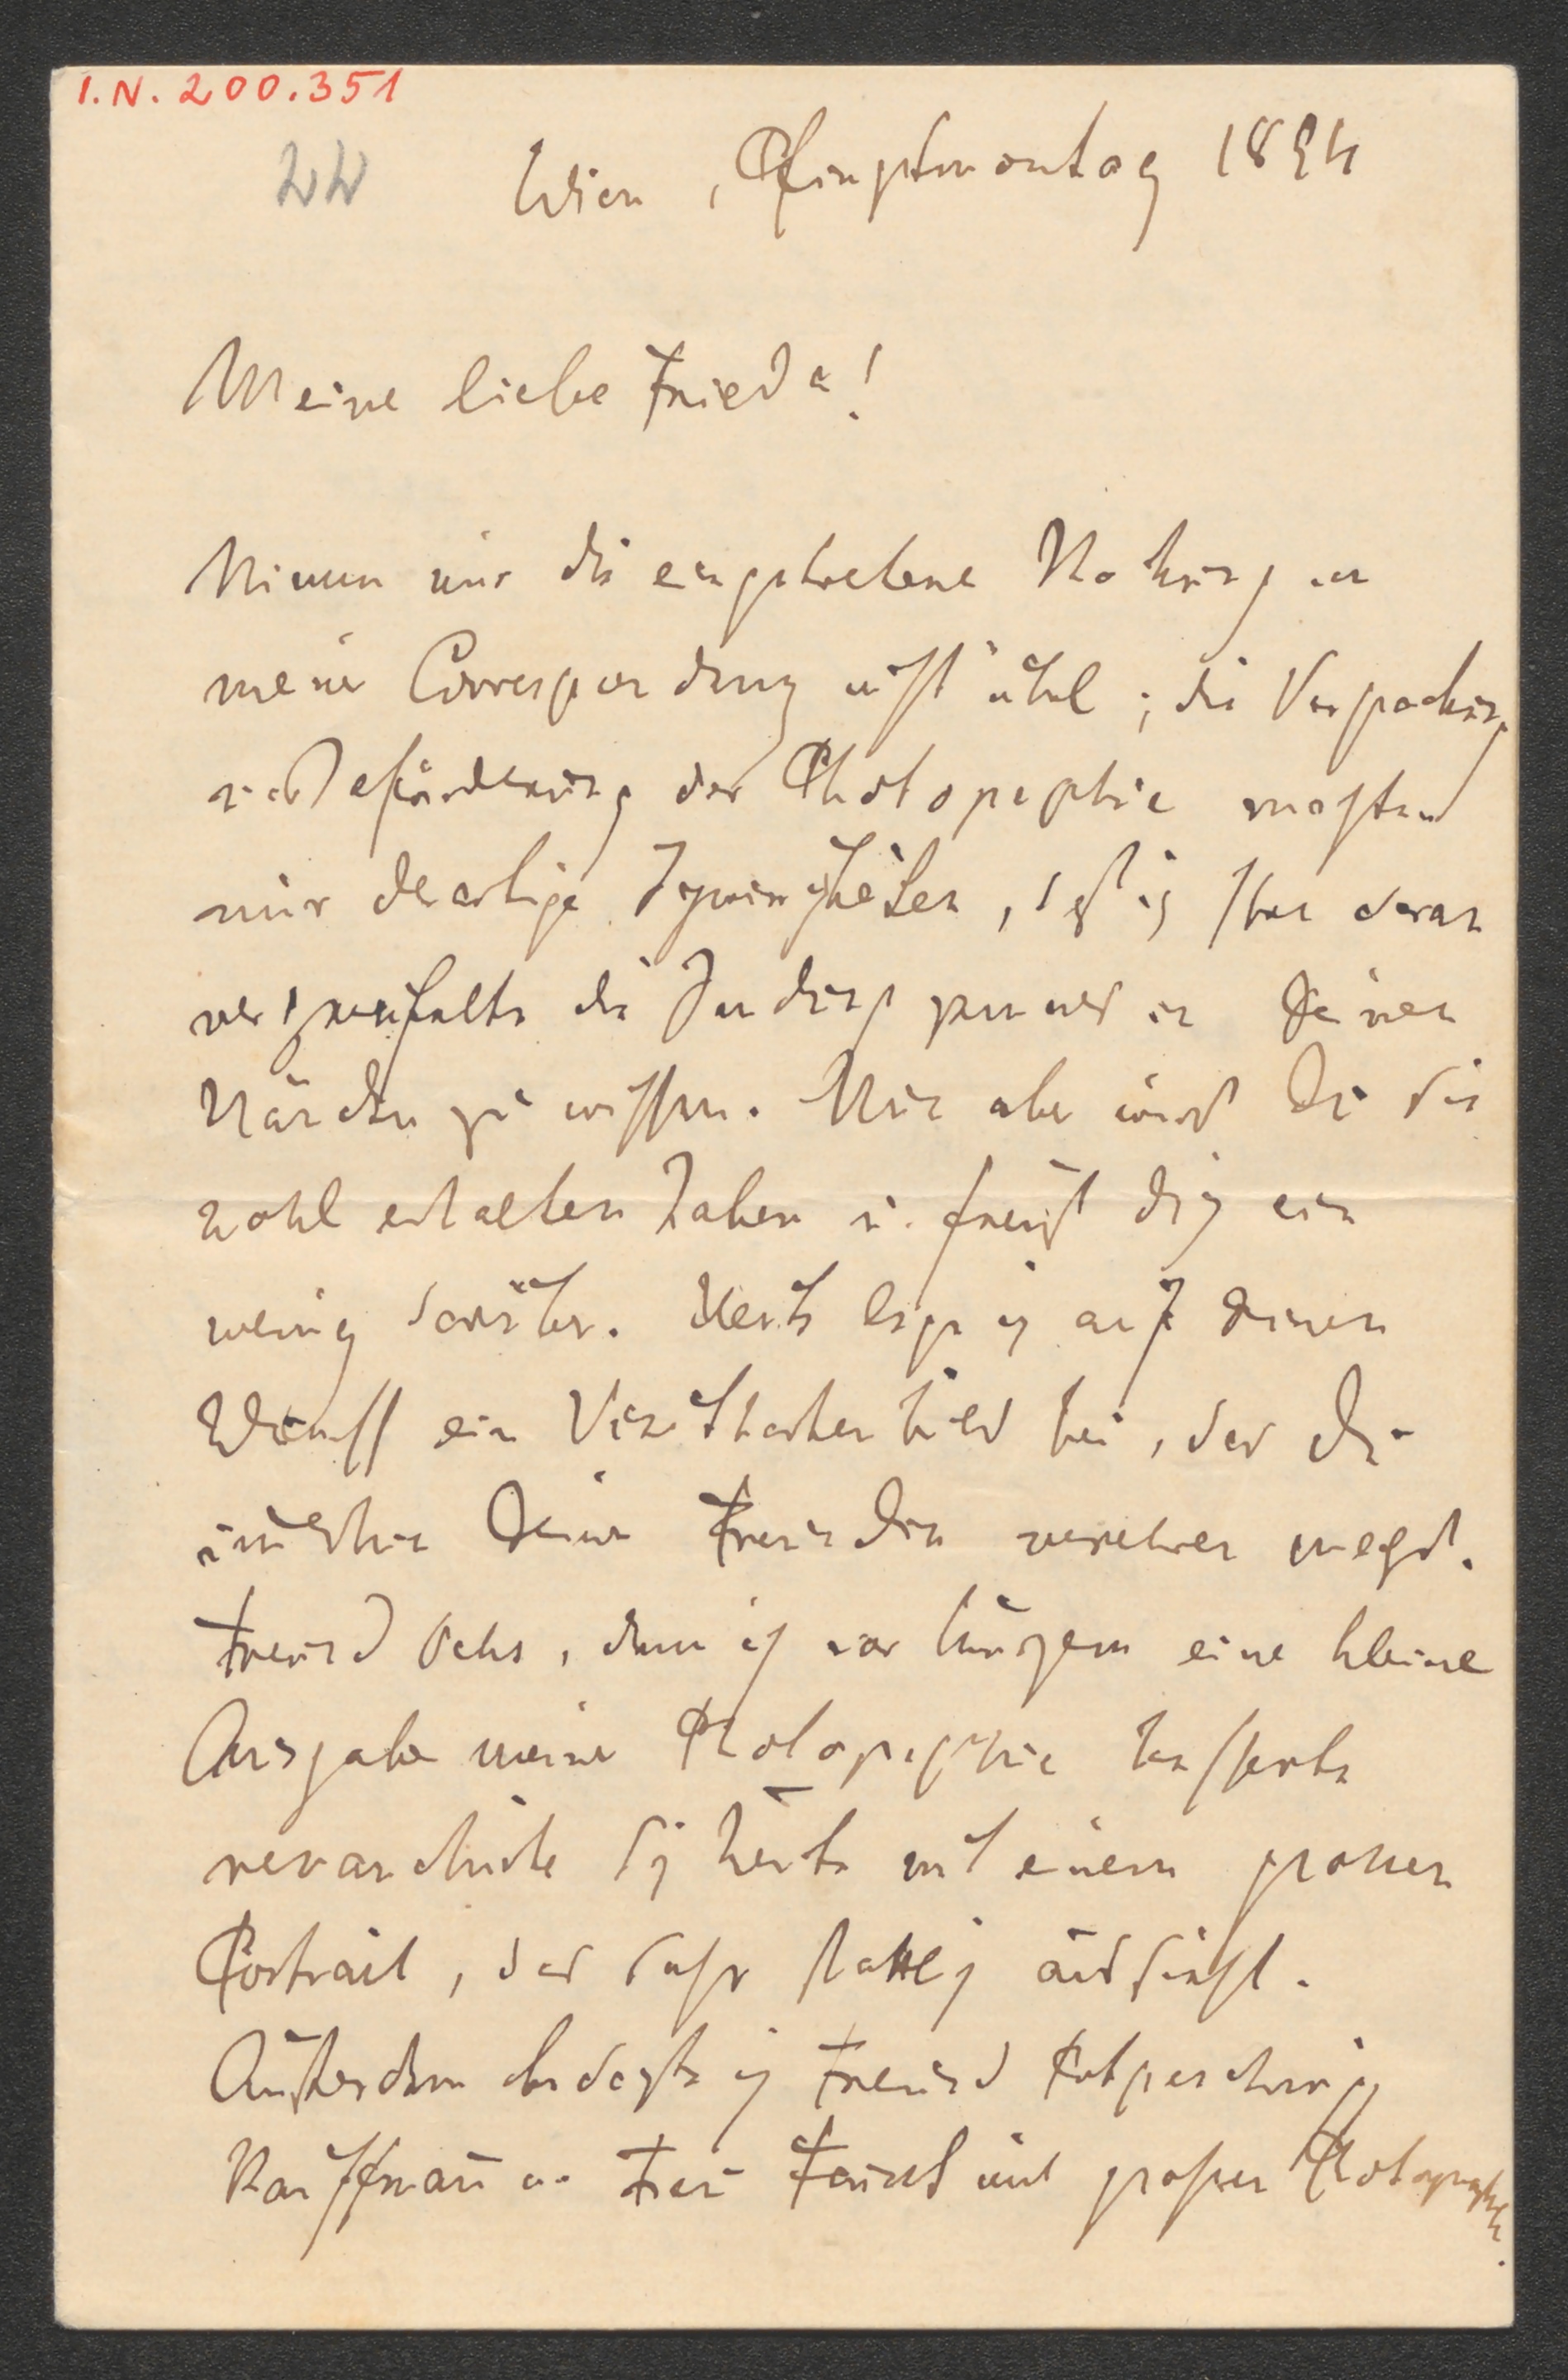 I.N. 200.351
22 Wien, Pfingstmontag 1894
Meine liebe Frieda!
Nimm mir die eingetretene Stockung in
meiner Correspondenz nicht übel; die Verpackung
u. Beförderung der Photographie machten
mir derartige Schwierigkeiten, daß ich schon daran
verzweifelte die Sendung jemals in Deinen
Händen zu wissen. Nun aber wirst Du sie
wohl erhalten haben u. freust Dich ein
wenig darüber. Heute lege ich auf Deinen
Wunsch ein Visitkartenbild bei, das Du
Deiner Freundin verehren magst.
Freund Ochs, dem ich vor kurzem eine kleine
Ausgabe meiner Photographie
revanchirte sich heute mit einem grossen
Portrait, das sehr stattlich aussieht.
Außerdem bedachte ich Freund Potpeschnigg
Kauffmann u. Frau Faisst mit großen Photographien.